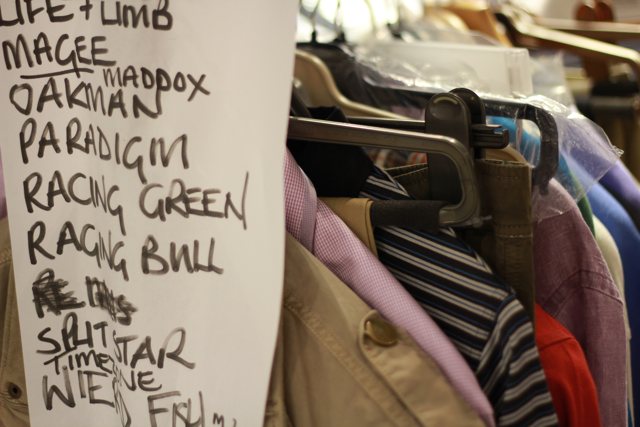 LIFE + LIMB
MAGEE
MADDOX
OAKMAN
PARADIGM
RACING GREEN
RAGING BULL
SPLIT STAR
Timezone
WIE
FISH